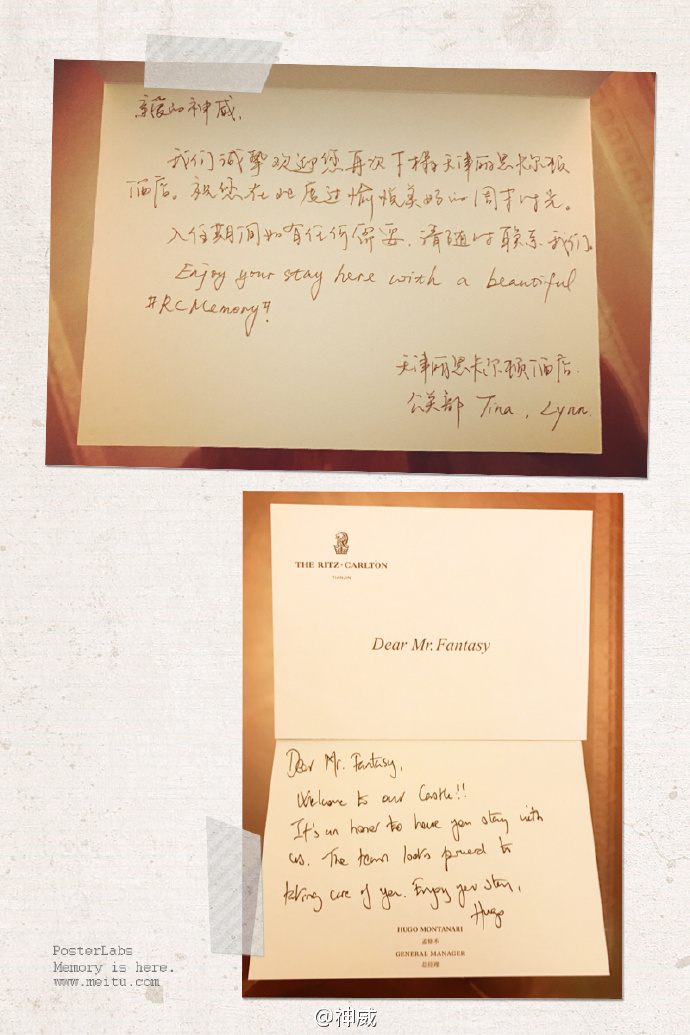 亲爱的神威，
我们诚挚欢迎您再次下榻天津丽思卡尔顿
酒店。祝您在此度过愉悦美好的周末时光。
入住期间如有任何需要，请随时联系我们。
Enjoy your stay here with a beautiful
#RCMemory#
天津丽思卡尔顿酒店
公关部 Tina, Lynn
THE RITZ-CARLTON
TIANJIN
Dear Mr. Fantasy
Dear Mr. Fantasy,
Welcome to our Castle!!
It's an honor to have you stay with
us. The team looks forward to
taking care of you. Enjoy your stay,
Hugo
HUGO MONTANARI
GENERAL MANAGER
总经理
PosterLabs
Memory is here.
www.meitu.com
@神威